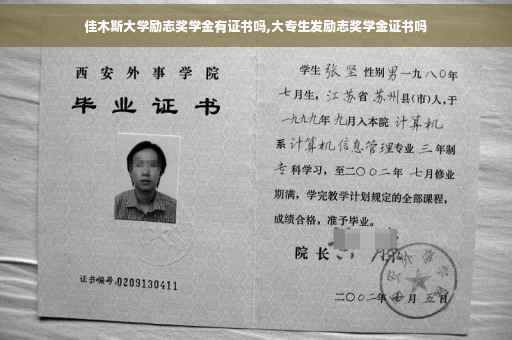 佳木斯大学励志奖学金有证书吗,大专生发励志奖学金证书吗
西安外事学院
毕业证书
证书编号:0209130411
学生 张坚 性别 男 一九八〇年
七月生, 江苏省 苏州 县(市)人,于
一九九九年 九月入本院 计算机
系 计算机信息管理 专业 三 年制
专 科学习, 至二〇〇二年 七月修业
期满, 学完教学计划规定的全部课程,
成绩合格, 准予毕业。
院长
二〇〇二年 月 五日